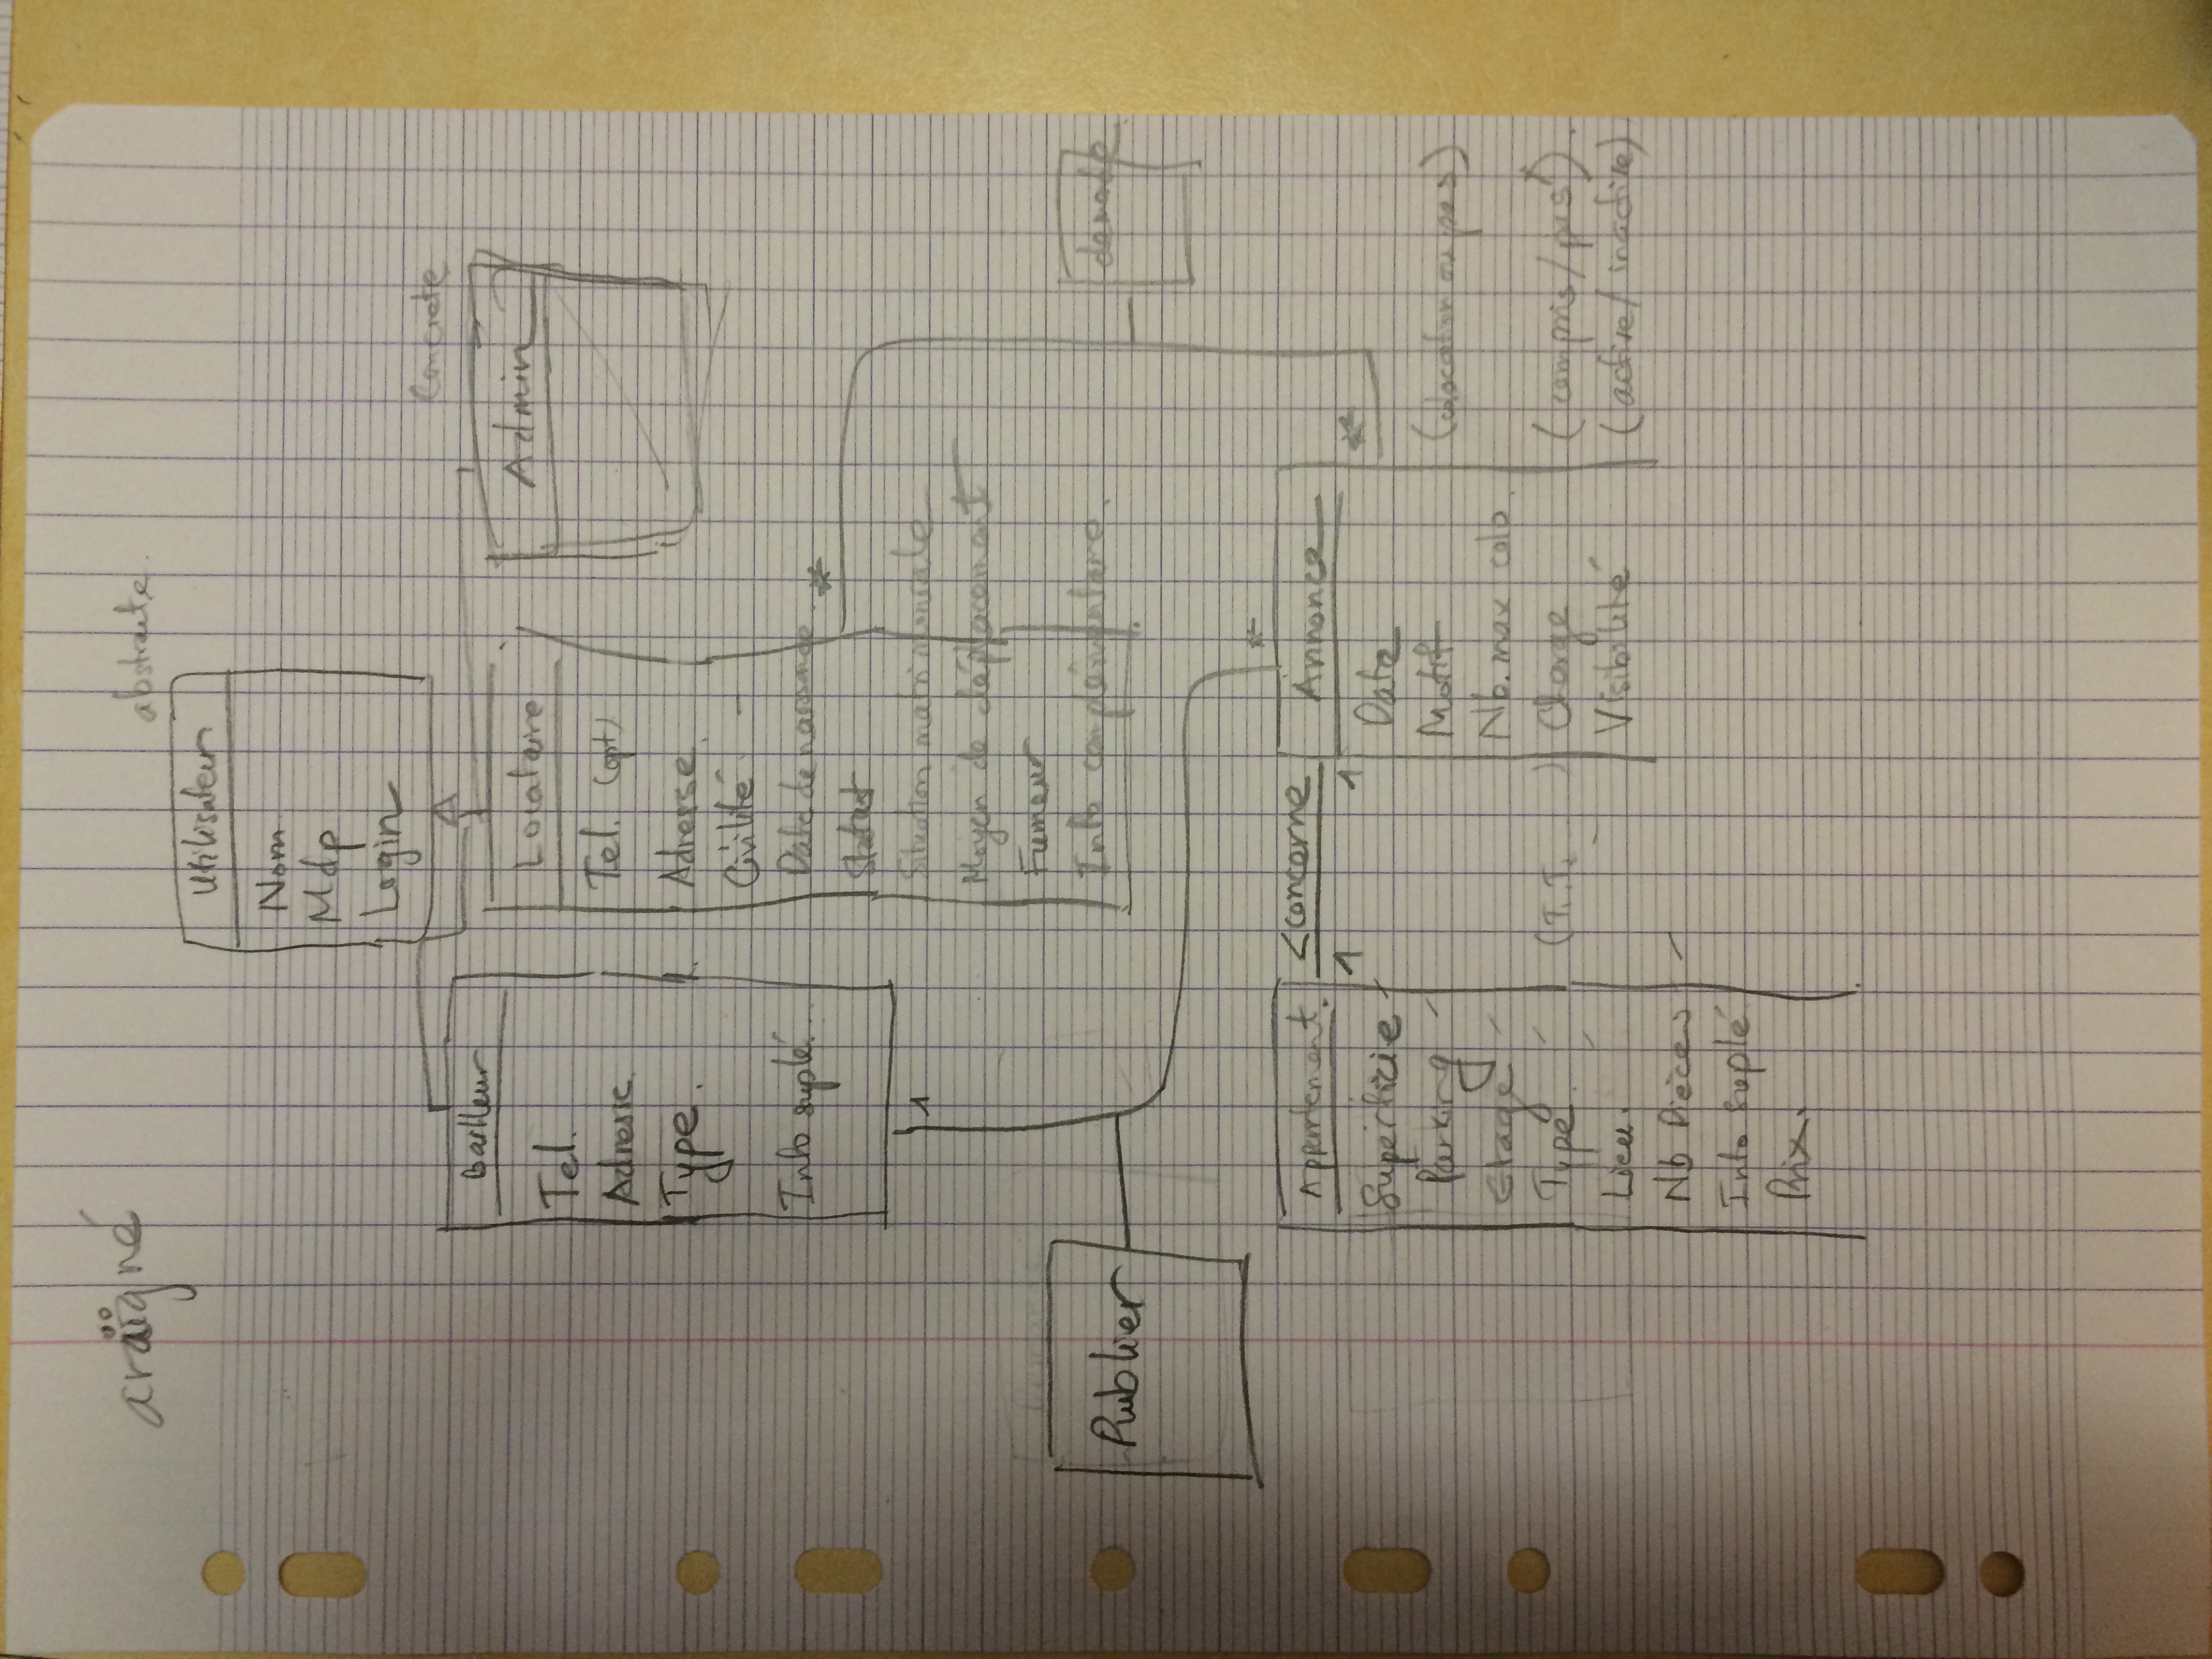 araïgné
abstraite.
Utilisateur
Nom
Mdp
Login
Concrete
Bailleur
Tel.
Adresse
Type.
Info suplé.
1
Locataire
Tel. (opt)
Adresse
Civilité
Date de naissance
Statut
Situation matrimoniale
Moyen de déplacement
Fumeur
Info complémentaire.
Admin
*
Publier
*
Appartement.
Superficie
Parking
Etage
Type (T.T. )
Lieu.
Nb Pièces
Info suplé
Prix.
<concerne
1 1
Annonce
*
Date
Motif (colocation ou pas)
Nb. max colo.
Charge (compris/pas).
Visibilité (active/inactive)